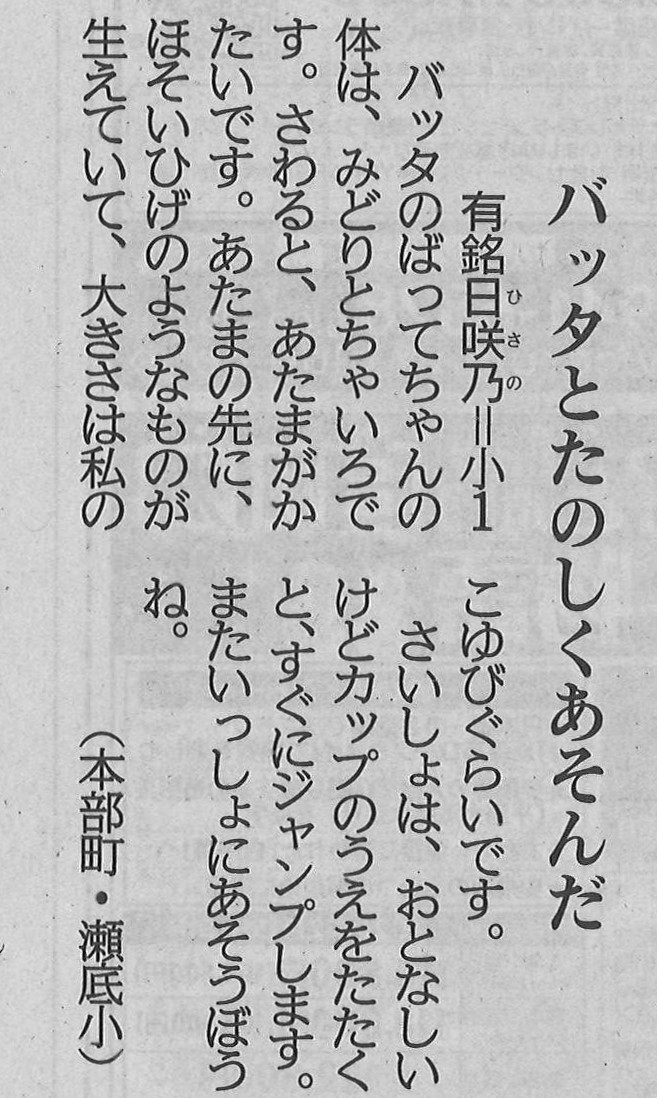 バッタとたのしくあそんだ
有銘日咲乃=小1
ひさの
バッタのばってちゃんの
体は、みどりとちゃいろで
す。さわると、あたまがか
たいです。あたまの先に、
ほそいひげのようなものが
生えていて、大きさは私の
こゆびぐらいです。
さいしょは、おとなしい
けどカップのうえをたたく
と、すぐにジャンプします。
またいっしょにあそうぼう
ね。
(本部町・瀬底小)